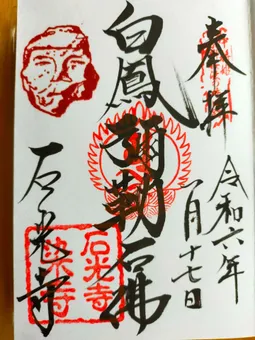 奉拝
令和六年
一月十七日
白鳳彌勒石佛
石光寺
石光寺